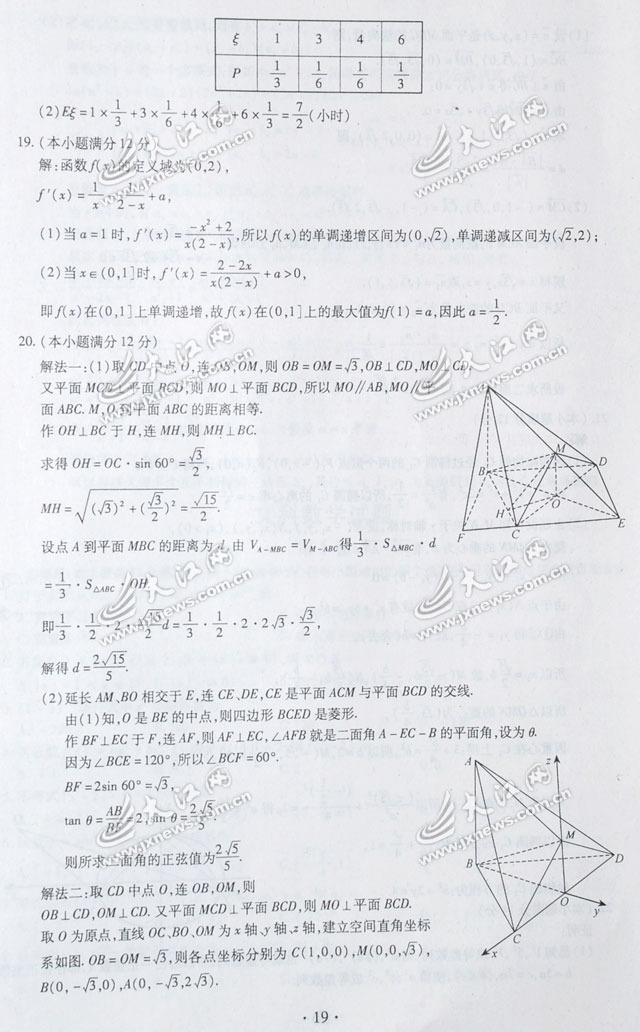 ξ 1 3 4 6
P 1/3 1/6 1/6 1/3
(2)Eξ=1×1/3+3×1/6+4×1/6+6×1/3=7/2(小时)
19.(本小题满分12分)
解:函数f(x)的定义域为(0,2),
f′(x)=1/x-1/(2-x)+a,
(1)当a=1时,f′(x)=(-x²+2)/(x(2-x)),所以f(x)的单调递增区间为(0,√2),单调递减区间为(√2,2);
(2)当x∈(0,1]时,f′(x)=(2-2x)/(x(2-x))+a>0,
即f(x)在(0,1]上单调递增,故f(x)在(0,1]上的最大值为f(1)=a,因此a=1/2.
20.(本小题满分12分)
解法一:(1)取CD中点O,连OB,OM,则OB=OM=√3,OB⊥CD,MO⊥CD,
又平面MCD⊥平面BCD,则MO⊥平面BCD,所以MO∥AB,MO∥平
面ABC.M,O到平面ABC的距离相等.
作OH⊥BC于H,连MH,则MH⊥BC.
求得OH=OC·sin 60°=√3/2,
MH=√((√3)²+(√3/2)²)=√15/2.
设点A到平面MBC的距离为d,由V_{A-MBC}=V_{M-ABC}得1/3·S_{△MBC}·d
=1/3·S_{△ABC}·OH.
即1/3·1/2·2·√15/2 d=1/3·1/2·2·2√3·√3/2,
解得d=2√15/5.
(2)延长AM、BO相交于E,连CE、DE,CE是平面ACM与平面BCD的交线.
由(1)知,O是BE的中点,则四边形BCED是菱形.
作BF⊥EC于F,连AF,则AF⊥EC,∠AFB就是二面角A-EC-B的平面角,设为θ.
因为∠BCE=120°,所以∠BCF=60°.
BF=2sin 60°=√3,
tan θ=AB/BF=2,sin θ=2√5/5.
则所求二面角的正弦值为2√5/5.
解法二:取CD中点O,连OB,OM,则
OB⊥CD,OM⊥CD.又平面MCD⊥平面BCD,则MO⊥平面BCD.
取O为原点,直线OC、BO、OM为x轴、y轴、z轴,建立空间直角坐标
系如图.OB=OM=√3,则各点坐标分别为C(1,0,0),M(0,0,√3),
B(0,-√3,0),A(0,-√3,2√3).
M
B
D
H
O
F
C
E
A
z
M
B
D
O
y
C
x
·19·
大江网
www.jxnews.com.cn